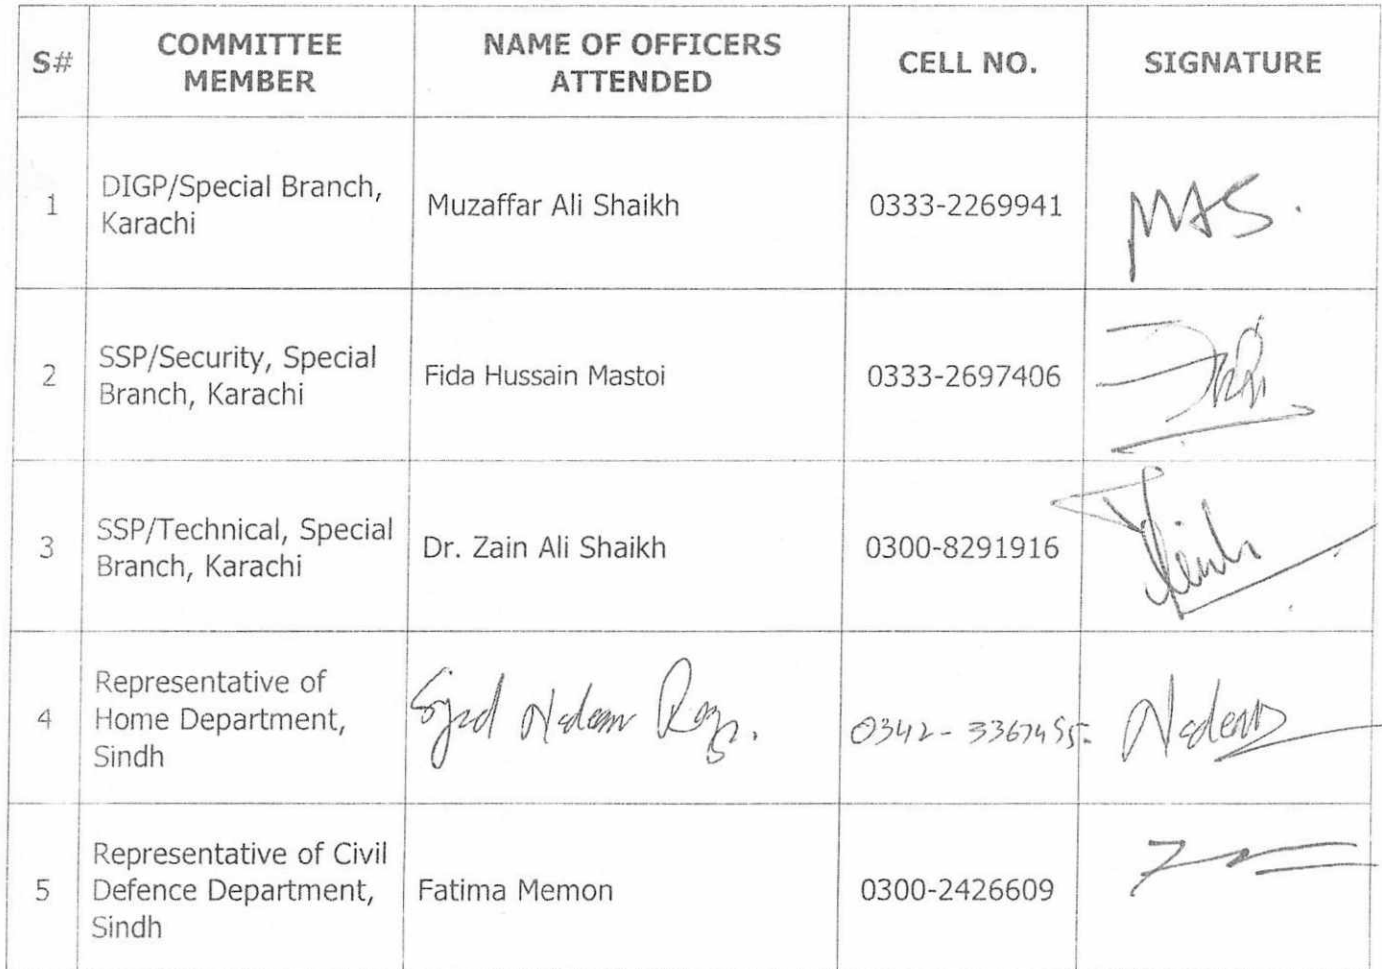 S#
COMMITTEE
MEMBER
NAME OF OFFICERS
ATTENDED
CELL NO.
SIGNATURE
1
DIGP/Special Branch,
Karachi
Muzaffar Ali Shaikh
0333-2269941
MAS.
2
SSP/Security, Special
Branch, Karachi
Fida Hussain Mastoi
0333-2697406
3
SSP/Technical, Special
Branch, Karachi
Dr. Zain Ali Shaikh
0300-8291916
4
Representative of
Home Department,
Sindh
Syed Nadeem
0342-3367455
Nadeem
5
Representative of Civil
Defence Department,
Sindh
Fatima Memon
0300-2426609